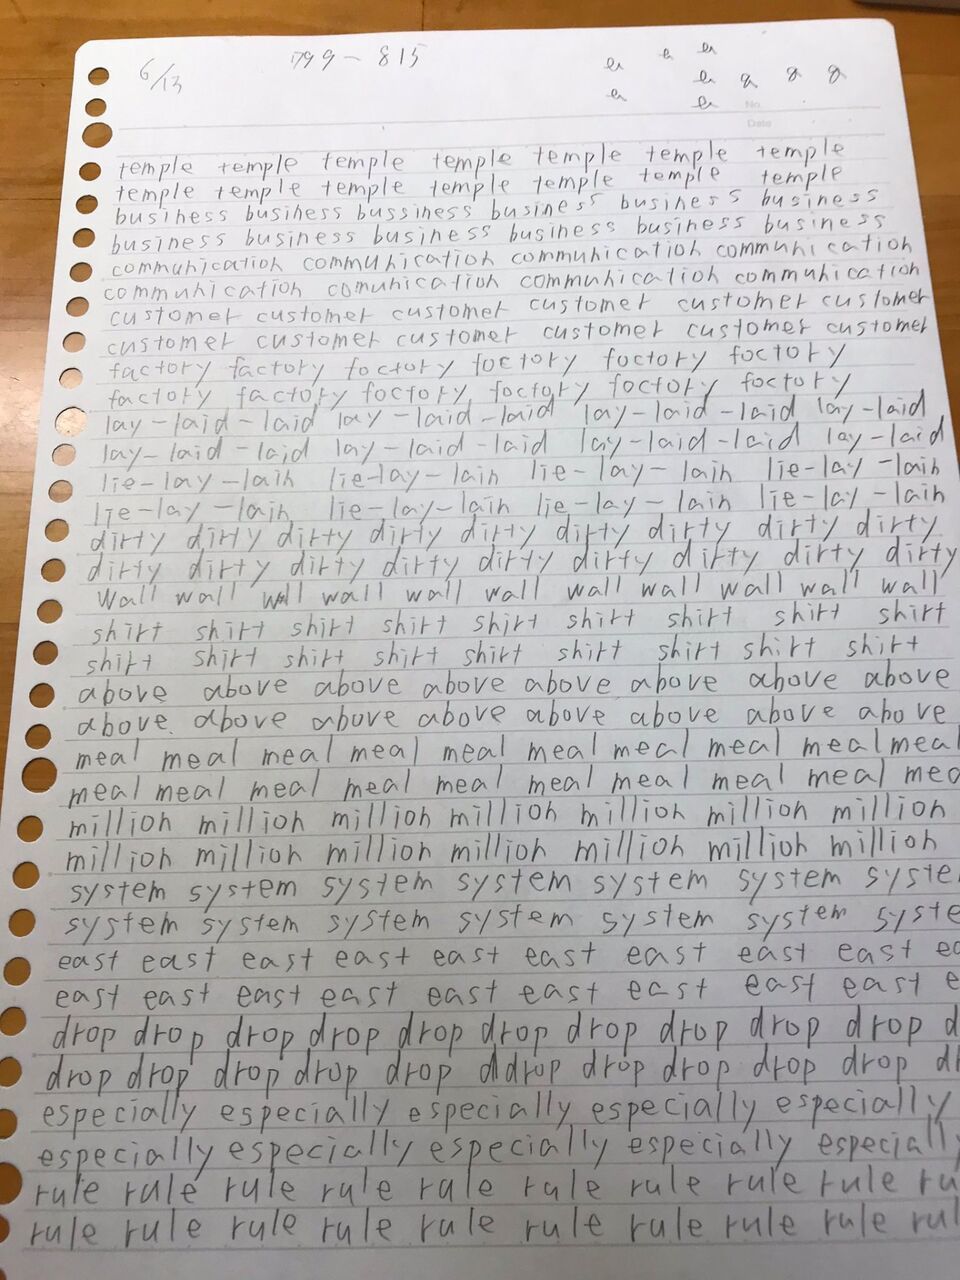 6/13 799-815
No.
Date
temple temple temple temple temple temple temple
temple temple temple temple temple temple temple
business business bussiness business business business
business business business business business business
communication communication communication communication
communication comunication communication communication
customer customer customer customer customer customer
customer customer customer customer customer customer
factory factory foctory foctory foctory foctory
factory factory foctory foctory foctory foctory
lay-laid-laid lay-laid-laid lay-laid-laid lay-laid
lay-laid-laid lay-laid-laid lay-laid-laid lay-laid
lie-lay-lain lie-lay-lain lie-lay-lain lie-lay-lain
lie-lay-lain lie-lay-lain lie-lay-lain lie-lay-lain
dirty dirty dirty dirty dirty dirty dirty dirty dirty
dirty dirty dirty dirty dirty dirty dirty dirty dirty
wall wall wall wall wall wall wall wall wall wall
shirt shirt shirt shirt shirt shirt shirt shirt shirt
shirt shirt shirt shirt shirt shirt shirt shirt shirt
above above above above above above above above
above above above above above above above above
meal meal meal meal meal meal meal meal meal meal
meal meal meal meal meal meal meal meal meal mea
million million million million million million million
million million million million million million million
system system system system system system syste
system system system system system system syste
east east east east east east east east east ea
east east east east east east east east east e
drop drop drop drop drop drop drop drop drop drop d
drop drop drop drop drop ddrop drop drop drop drop dr
especially especially especially especially especially
especially especially especially especially especially
rule rule rule rule rule rule rule rule rule ru
rule rule rule rule rule rule rule rule rule rul